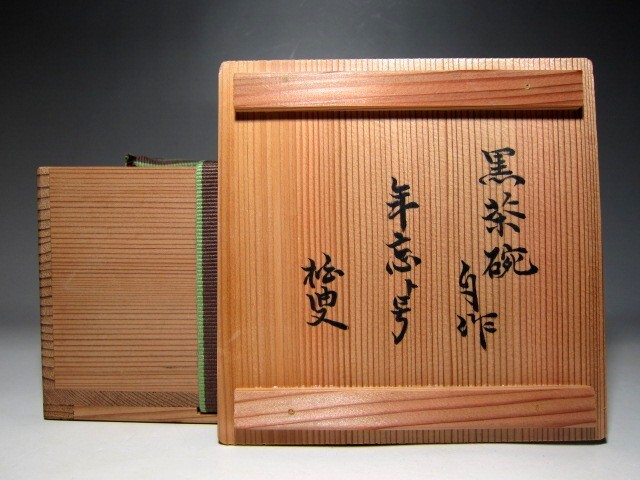 黒茶碗
自作
年忘レ号
松叟